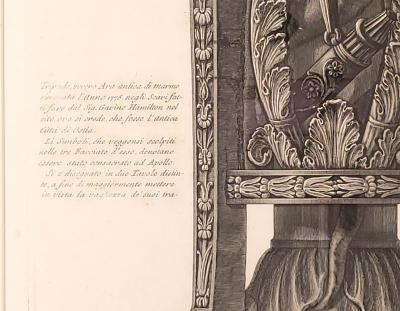 Tripode, ovvero Ara antica di marmo
ritrovata l'Anno 1775. negli Scavi fat-
ti fare dal Sig. Gavino Hamilton nel
sito, ove si crede, che fosse l'antica
Città di Ostia.
Li Simboli, che veggonsi scolpiti
nelle tre Facciate d'esso, denotano
essere stato consacrato ad Apollo.
Si è disegnato in due Tavole distin-
te, a fine di maggiormente mettere
in vista la vaghezza de' suoi tra-